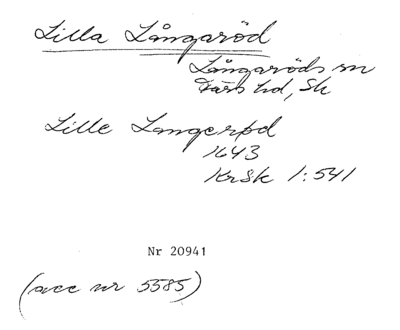 Lilla Långaröd
Långaröds sn
Färs hd, Sk
Lille Langerød
1643
KrSk 1:541
Nr 20941
(acc nr 5585)